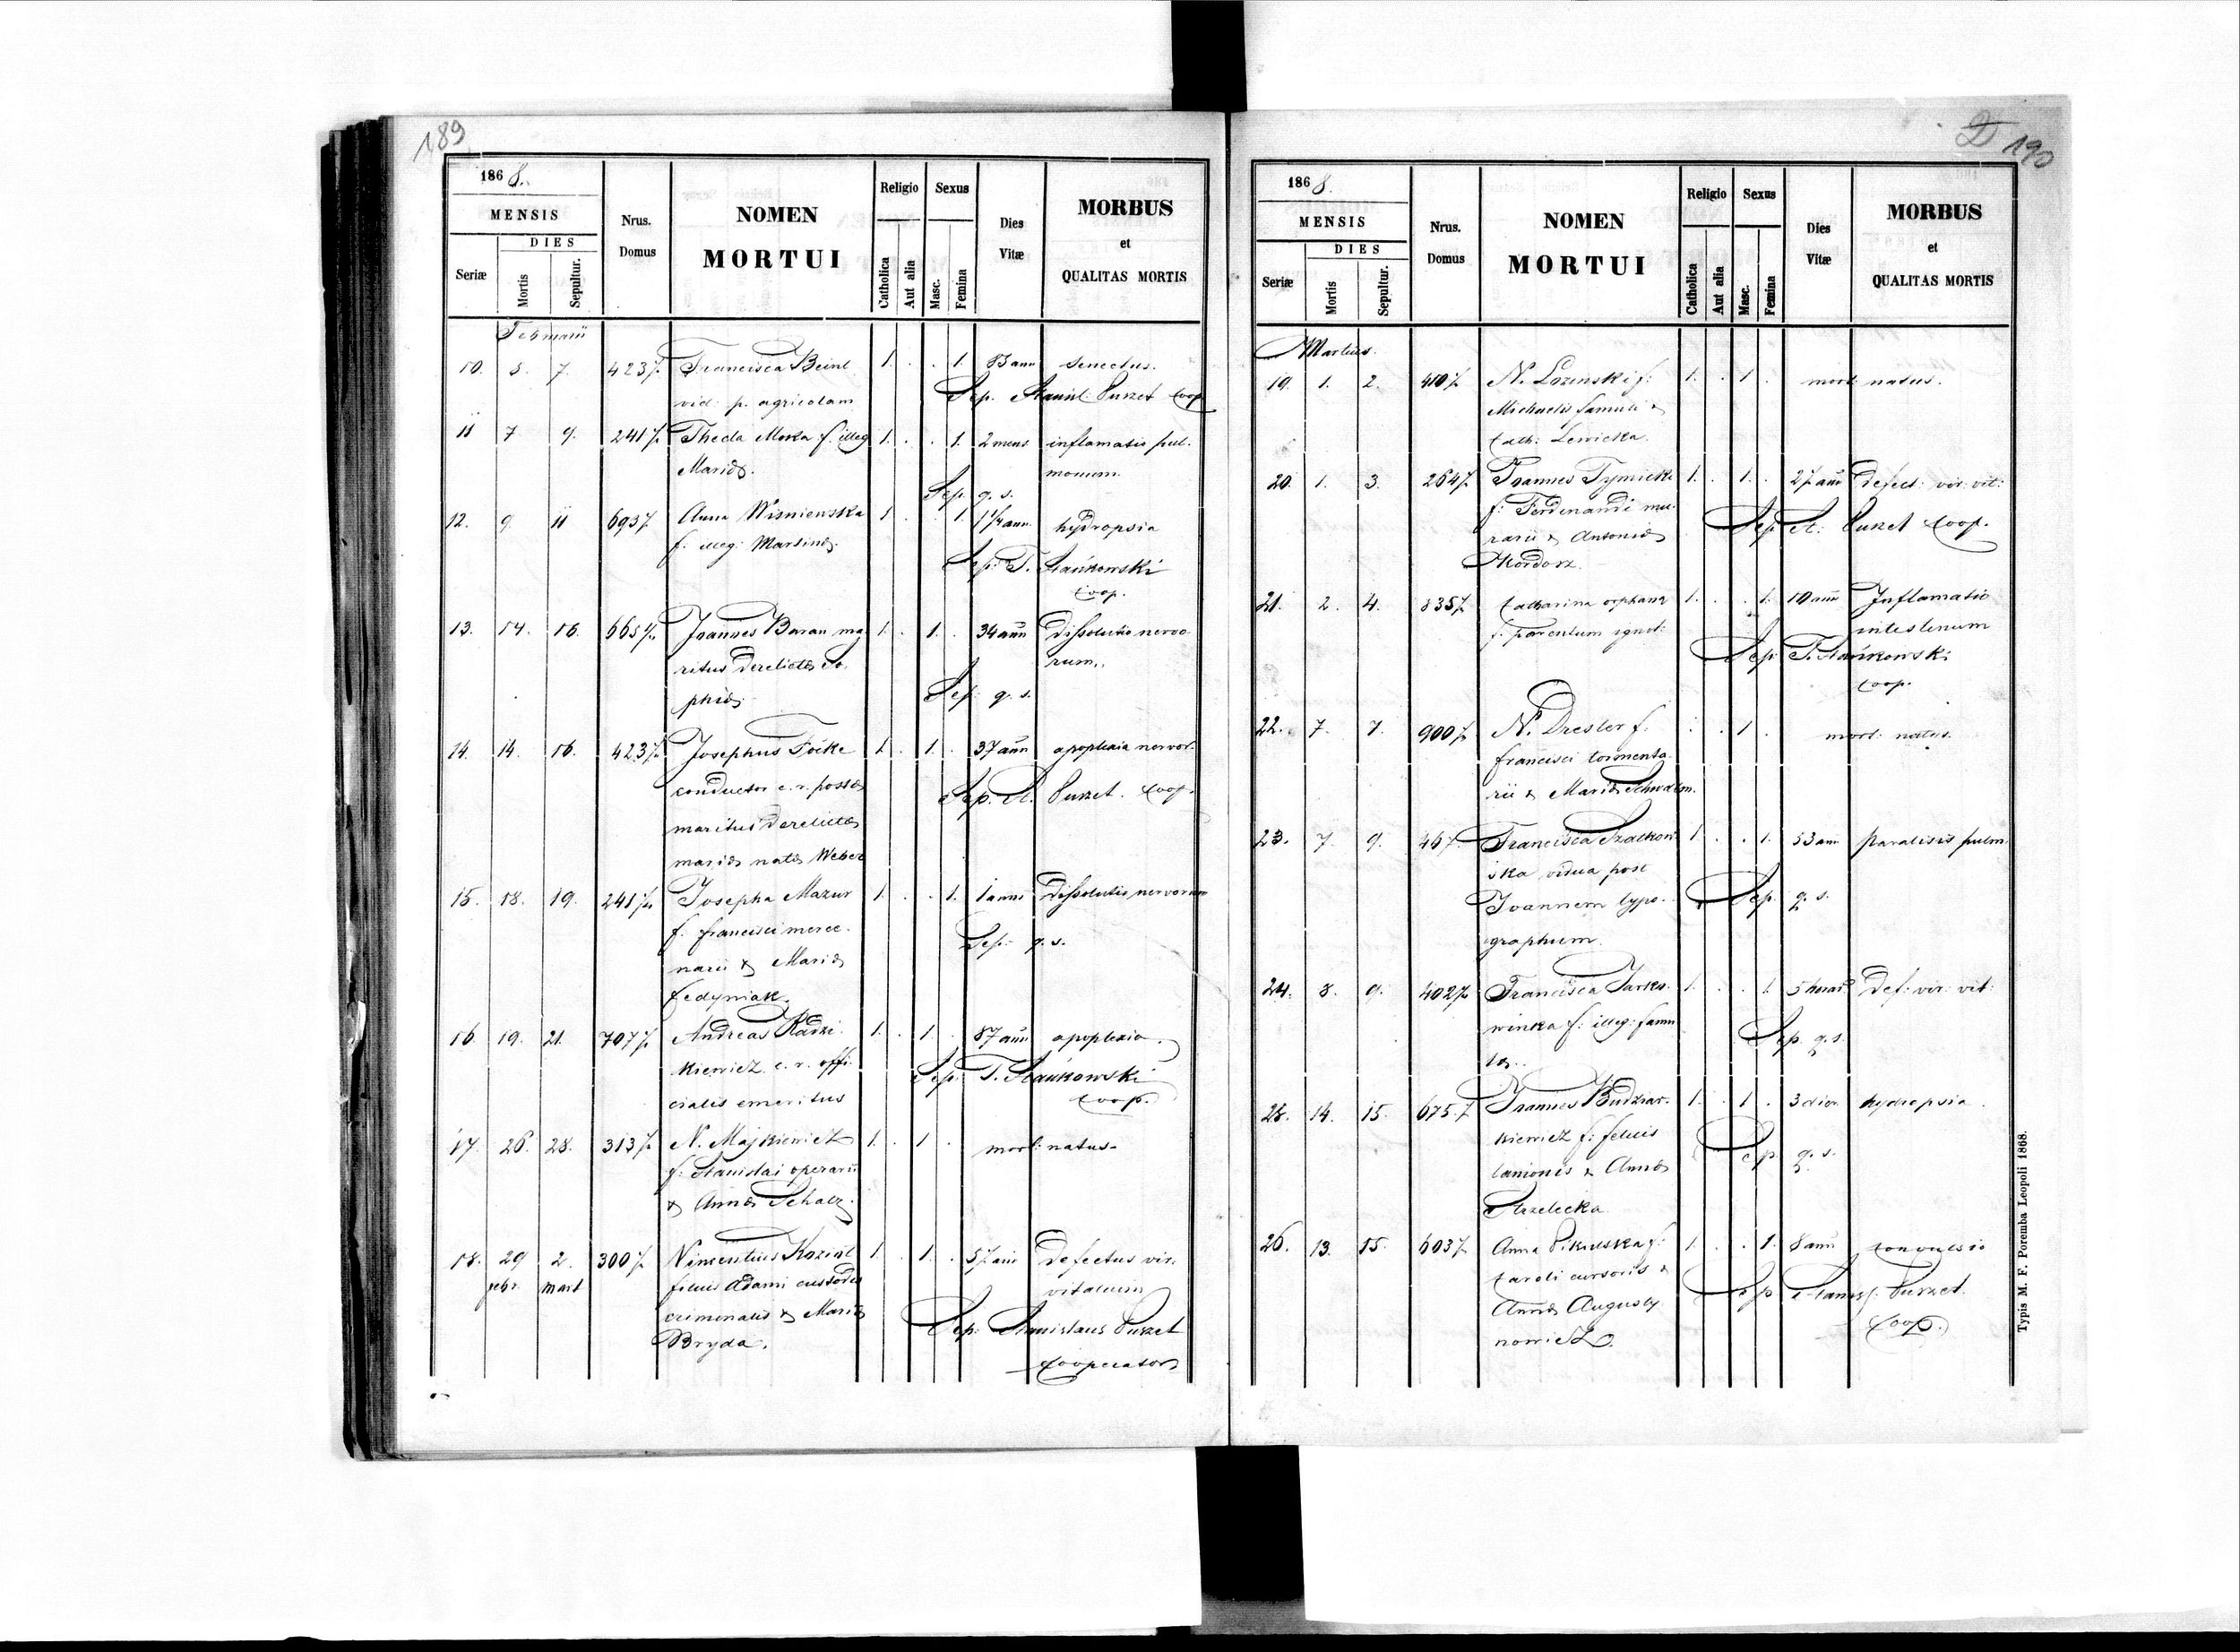 189
186 8.
MENSIS
DIES
Seriæ
Mortis
Sepultur.
Nrus.
Domus
NOMEN
MORTUI
Religio
Catholica
Aut alia
Sexus
Masc.
Femina
Dies
Vitæ
MORBUS
et
QUALITAS MORTIS
Februarii
10. 5. 7. 423/ Francisca Beinl 1. . . 1. 83 ann senectus.
vid: p. agricolam
Sep. Stanisl: Puszet Coop
11 7 9. 241/ Thecla f. illeg 1. . . 1. 2 mens inflamatio pul.
Mariæ. monum.
Sep. q. s.
12. 9. 11 693/ Anna Wisnienska 1 . . 1. 1 1/4 ann. hydropsia
f. illeg: Martinæ.
Sep: T. Stańkowski
Coop.
13. 14. 16. 665/ Joannes Baran ma 1. . 1. . 34 ann dissolutio nervo
ritus derelictæ So. rum.
phiæ
Sep: q. s.
14. 14. 16. 423/ Josephus Focke 1. . 1. . 37 ann apoplexia nervor.
conductor c. r. postæ
Sep. St. Puszet. Coop.
maritus derelictæ
mariæ natæ Weber
15. 18. 19. 241/ Josepha Mazur 1. . . 1. 1 anni dissolutio nervorum
f. francisci merce.
Sep: q. s.
narii & Mariæ
fedyniak.
16. 19. 21. 707/ Andreas Radzi 1. . 1. . 87 ann apoplexia.
kiewicz c. r. offi.
Sep: T. Stańkowski
cialis emeritus
Coop.
17. 26. 28. 313/ N. Majkiewicz 1. . 1 . mort: natus.
f. Stanislai operarii
& Annæ Schatz.
18. 29 2. 300/ Vincentius Kozint 1. . 1. . 57 ann defectus vir.
febr. Mart filius Adami custodis vitalium
criminalis & Mariæ
Sep: Stanislaus Puszet
Bryda.
Cooperator
D 190
186 8.
MENSIS
DIES
Seriæ
Mortis
Sepultur.
Nrus.
Domus
NOMEN
MORTUI
Religio
Catholica
Aut alia
Sexus
Masc.
Femina
Dies
Vitæ
MORBUS
et
QUALITAS MORTIS
Martius.
19. 1. 2. 410/ N. Lozinski f. 1. . 1 . mort: natus.
Michaelis famuli &
Cath: Lewicka.
20. 1. 3. 264/ Joannes Tymicki 1. . 1. . 27 ann defect: vir: vit:
f. Ferdinandi mu.
Sep St: Puszet Coop.
rarii & Antoniæ
Kordorz.
21. 2. 4. 835/ Catharina orphana 1. . . 1. 10 ann Inflamatio
f. parentum ignot: intestinum
Sep T. Stańkowski
Coop.
22. 7 7. 900/ N. Dresler f. . . 1 . mort: natus.
francisci tormenta.
rii & Mariæ Schwalm.
23. 7. 9. 467 Francisca Szalkow 1. . . 1. 53 ann paralisis pulm.
ska vidua post
Joannem typo.
Sep. q. s.
graphum.
24. 8. 9. 402/ Francisca Jarko. 1. . . 1. 5 horar. Def: vir: vit:
winka f: illeg: famu
Sep. q. s.
læ.
25. 14. 15. 675/ Joannes Budziar. 1. . 1 . 3 dier hydropsia.
kiewicz f: felicis
Sep q. s.
lanionis & Annæ
Strzelecka
26. 13. 15. 603/ Anna Pikulska f. 1. . . 1. 8 ann Convulsio
Caroli cursoris &
Sep Stanisl. Puszet.
Annæ Augusty
Coop.
nowicz.
Typis M. F. Poremba Leopoli 1868.